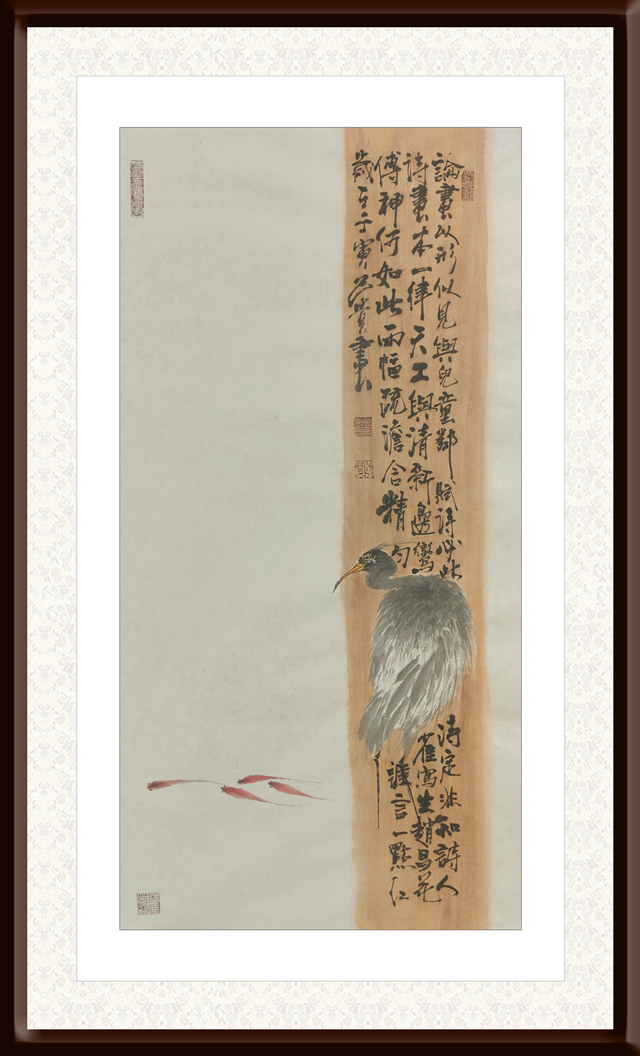 論畫以形似見與兒童鄰賦詩必此詩定非知詩人
詩畫本一律天工與清新邊鸞雀寫生趙昌花
傳神何如此兩幅疏澹含精勻誰言一點紅
歲壬寅